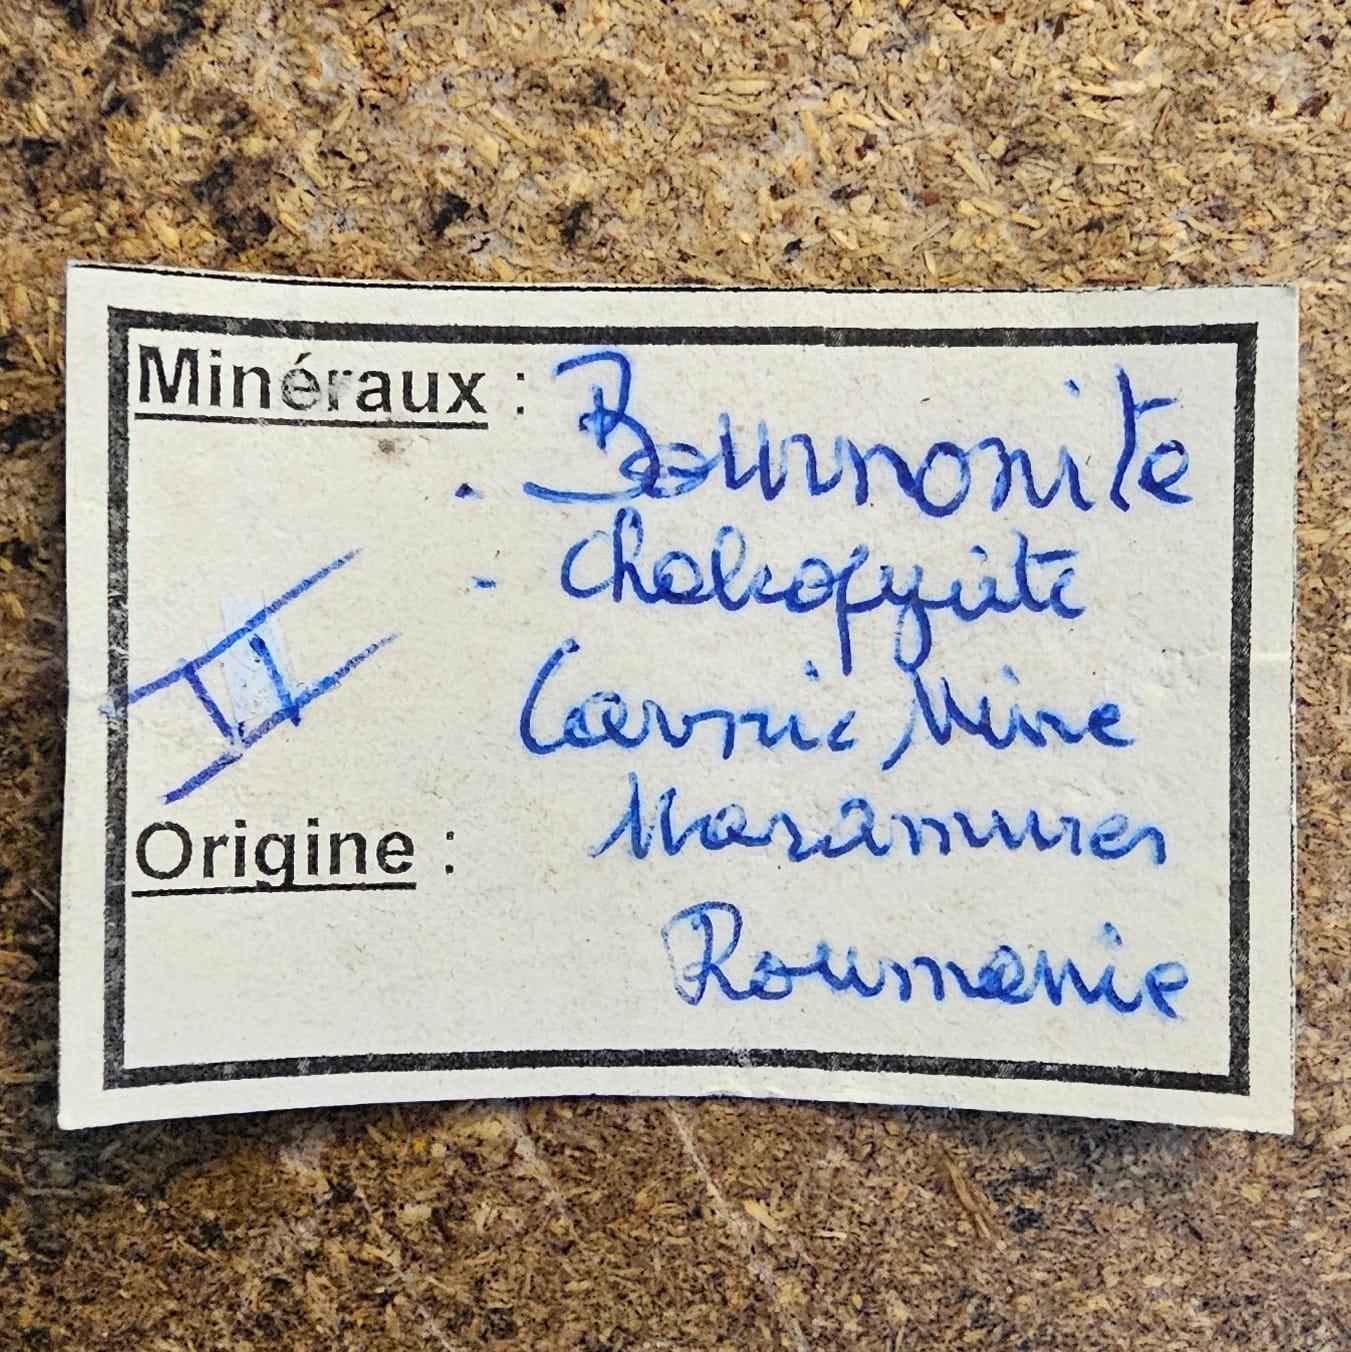 Minéraux : Bournonite
- Chalcopyrite
Cavnic Mine
Maramures
Origine :
Roumanie